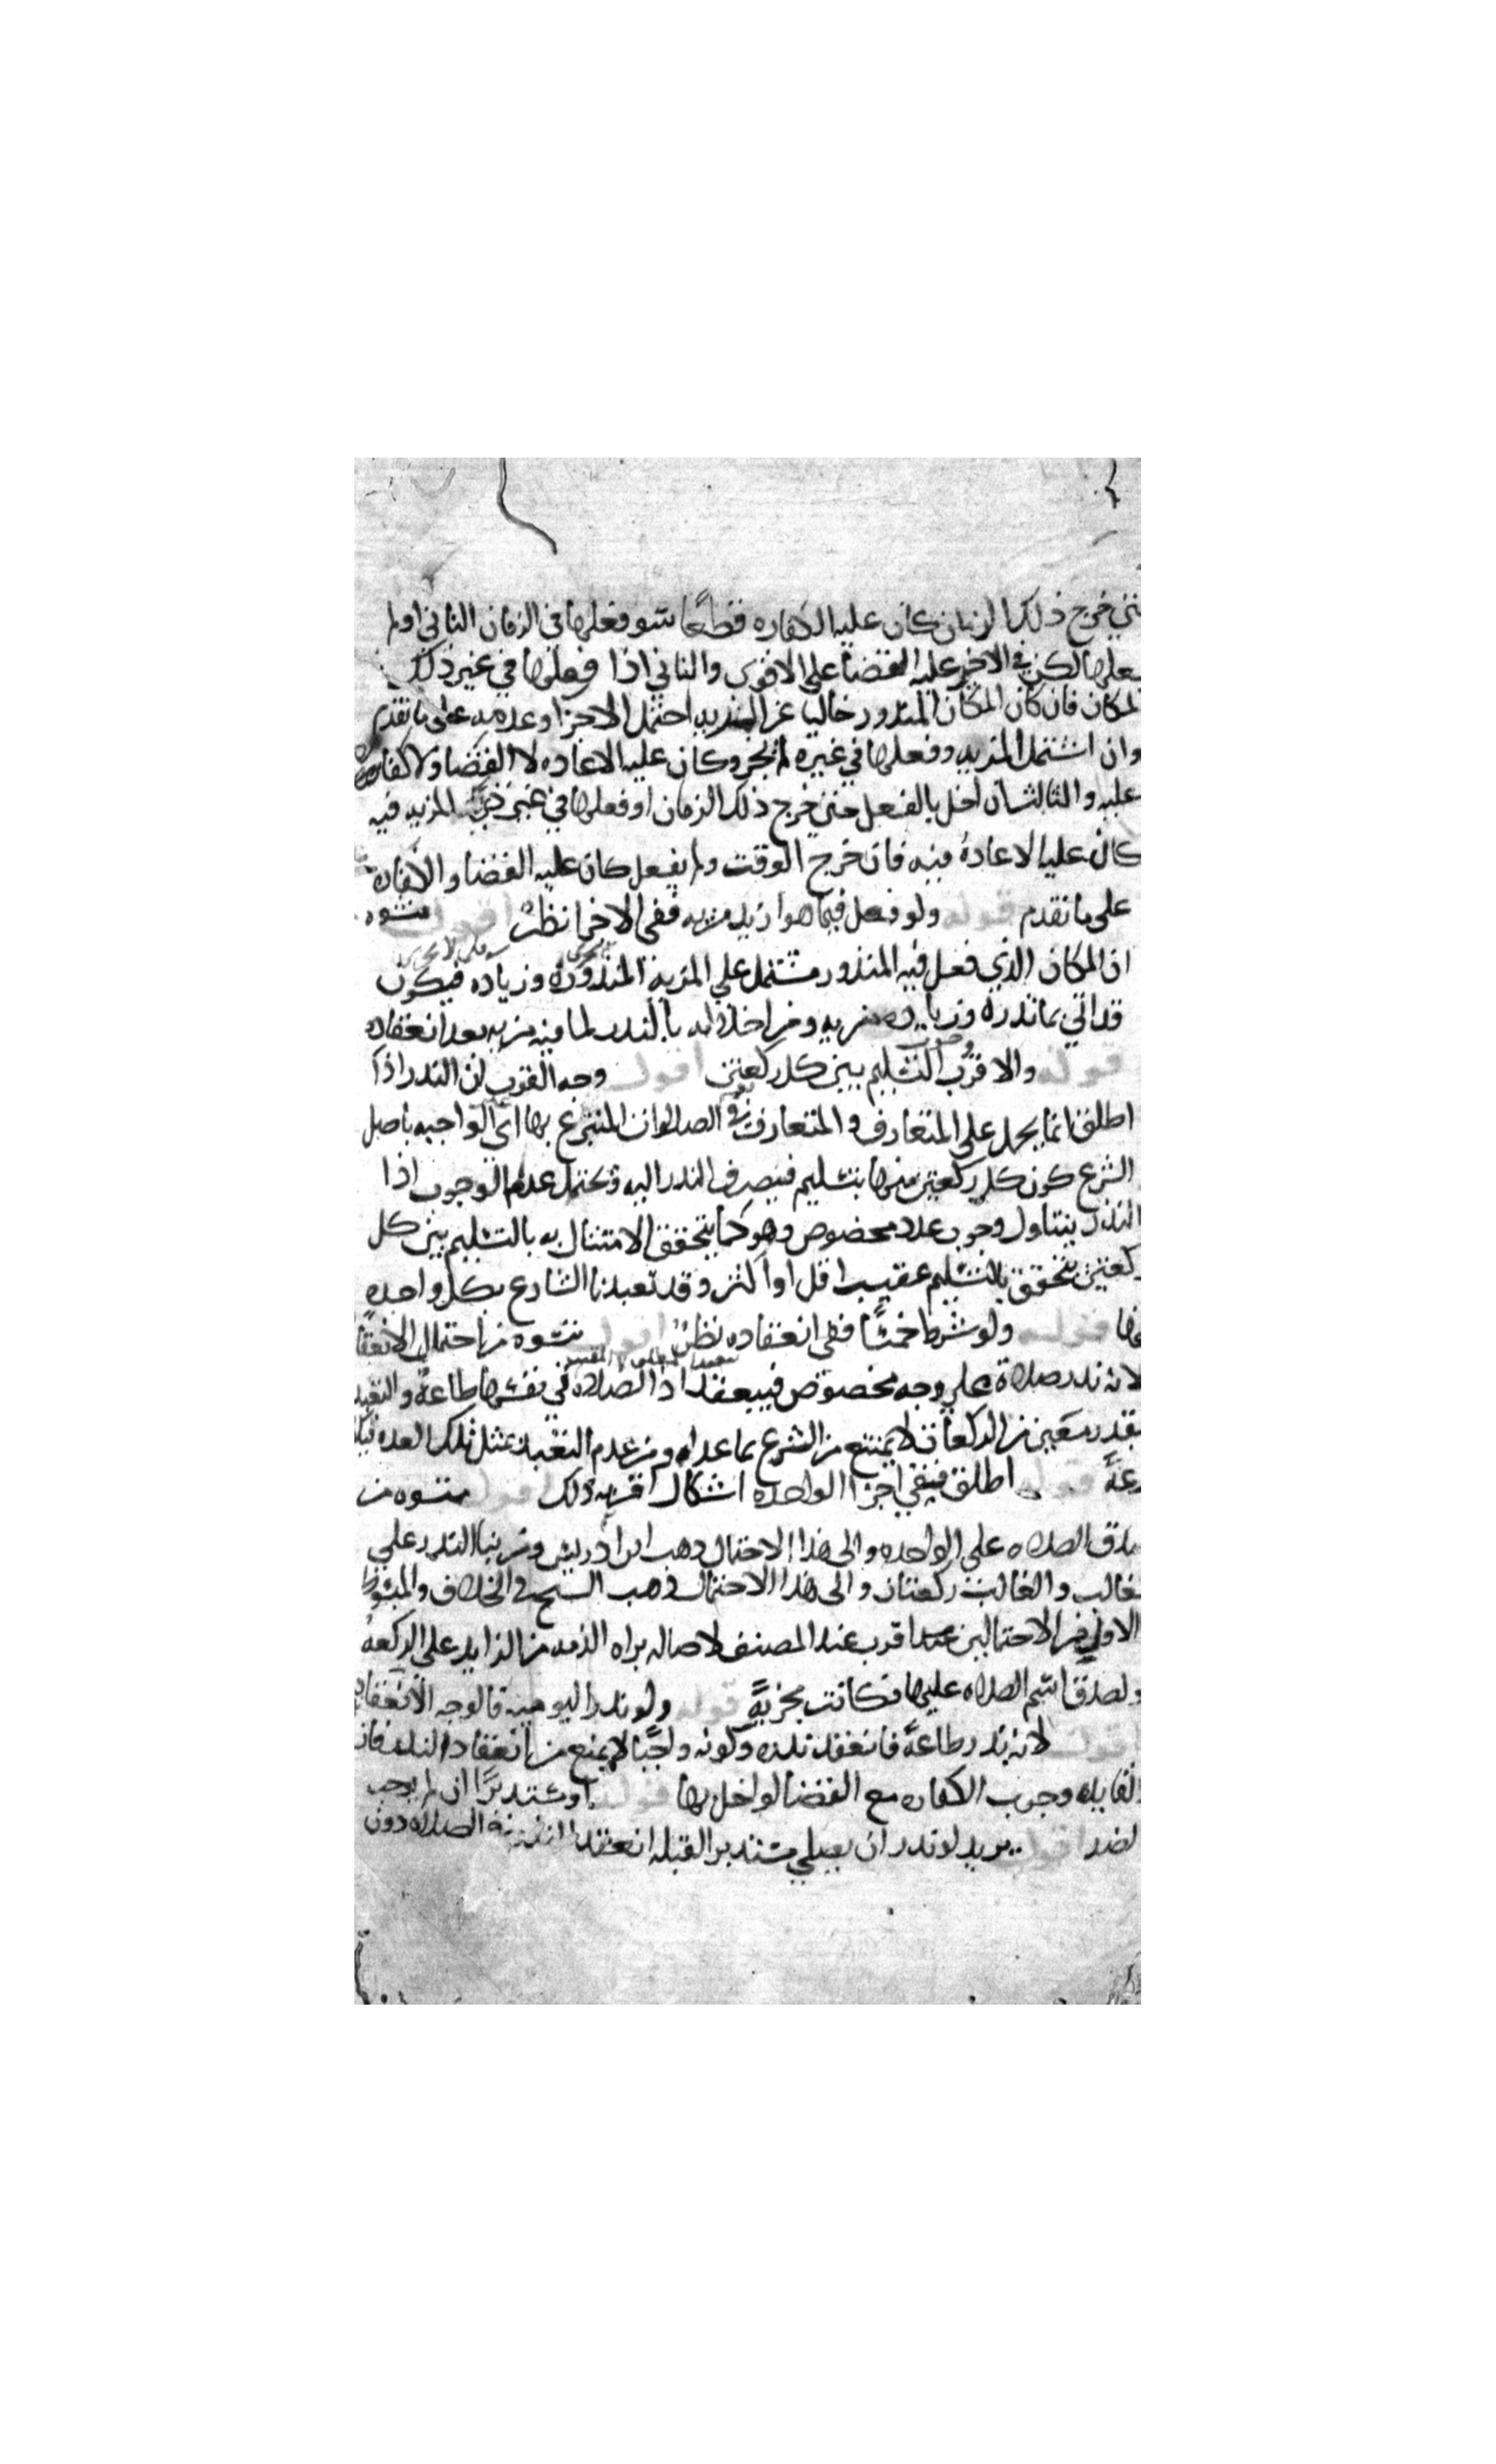 خرج ذلك الزمان كان عليه الكفاره قطعًا سوا فعلها في الزمان الثاني او لم
يفعلها لكن في الاخير عليه القضا على الاقوى والثاني اذا فعلها في غير ذلك
المكان فان كان المكان المنذور خاليا عن المزيه احتمل الاجزا وعدمه على ما تقدم
وان اشتمل المزيه وفعلها في غيره لم يجز وكان عليه الاعاده لا القضا ولا كفاره
عليه والثالث ان اخل بالفعل حتى خرج ذلك الزمان او فعلها في غير المزيه فيه
كان عليه الاعادة فيه فان خرج الوقت ولم يفعل كان عليه القضا والكفاره
على ما تقدم قوله ولو فعل فيما هو ازيد مزيه ففي الاجزا نظر اقول ينشوه
ان المكان الذي فعل فيه المنذور مشتمل على المزيه المنذورة وزياده فيكون
قد اتي بما نذره وزياده مزيه ومن اخلاله بالنذر لما فيه مزيه بعد انعقاده
قوله والاقرب وجوب التسليم بين كل ركعتين اقول وجه القرب ان النذر اذا
اطلق انما يحمل على المتعارف والمتعارف في الصلوات المتبرع بها اي الواجبه باصل
الشرع كون كل ركعتين منها بتسليم فيصرف النذر اليه ويحتمل عدم الوجوب اذا
النذر يتناول وجوب عدد مخصوص وهو كما يتحقق الامتثال به بالتسليم بين كل
ركعتين يتحقق بالتسليم عقيب اقل او اكثر وقد تعبدنا الشارع بكل واحده
منها قوله ولو شرط خمسًا ففي انعقاده نظر اقول ينشوه من احتمال الانعقا
لانه نذر صلاة على وجه مخصوص فينعقد اذ الصلاه في نفسها طاعة والتقييد
بقدر معين من الركعات لا يمنع من الشرع بما عداه ومن عدم التعبد بمثل تلك العده
بدعةً قوله اطلق ففي اجزا الواحده اشكال اقربه ذلك اقول ينشوه من
صدق الصلاه على الواحده والى هذا الاحتمال ذهب ابن ادريس ومن بنا النذر على
الغالب والغالب ركعتان والى هذا الاحتمال ذهب الشيخ في الخلاف والمبسوط
الاول من الاحتمالين اقرب عند المصنف لاصاله براه الذمه من الزايد على الركعه
ولصدق اسم الصلاه عليها فكانت مجزيةً قوله ولو نذر اليوميه فالوجه الانعقاد
اقول لانه نذر طاعةً فانعقد نذره وكونه واجبًا لا يمنع من انعقاد النذر فان
الفايده وجوب الكفاره مع القضا لو اخل بها قوله او مستدبرًا ان لم يوجب
الضد اقول يريد لو نذر ان يصلي مستدبر القبله انعقد الصلاه دون